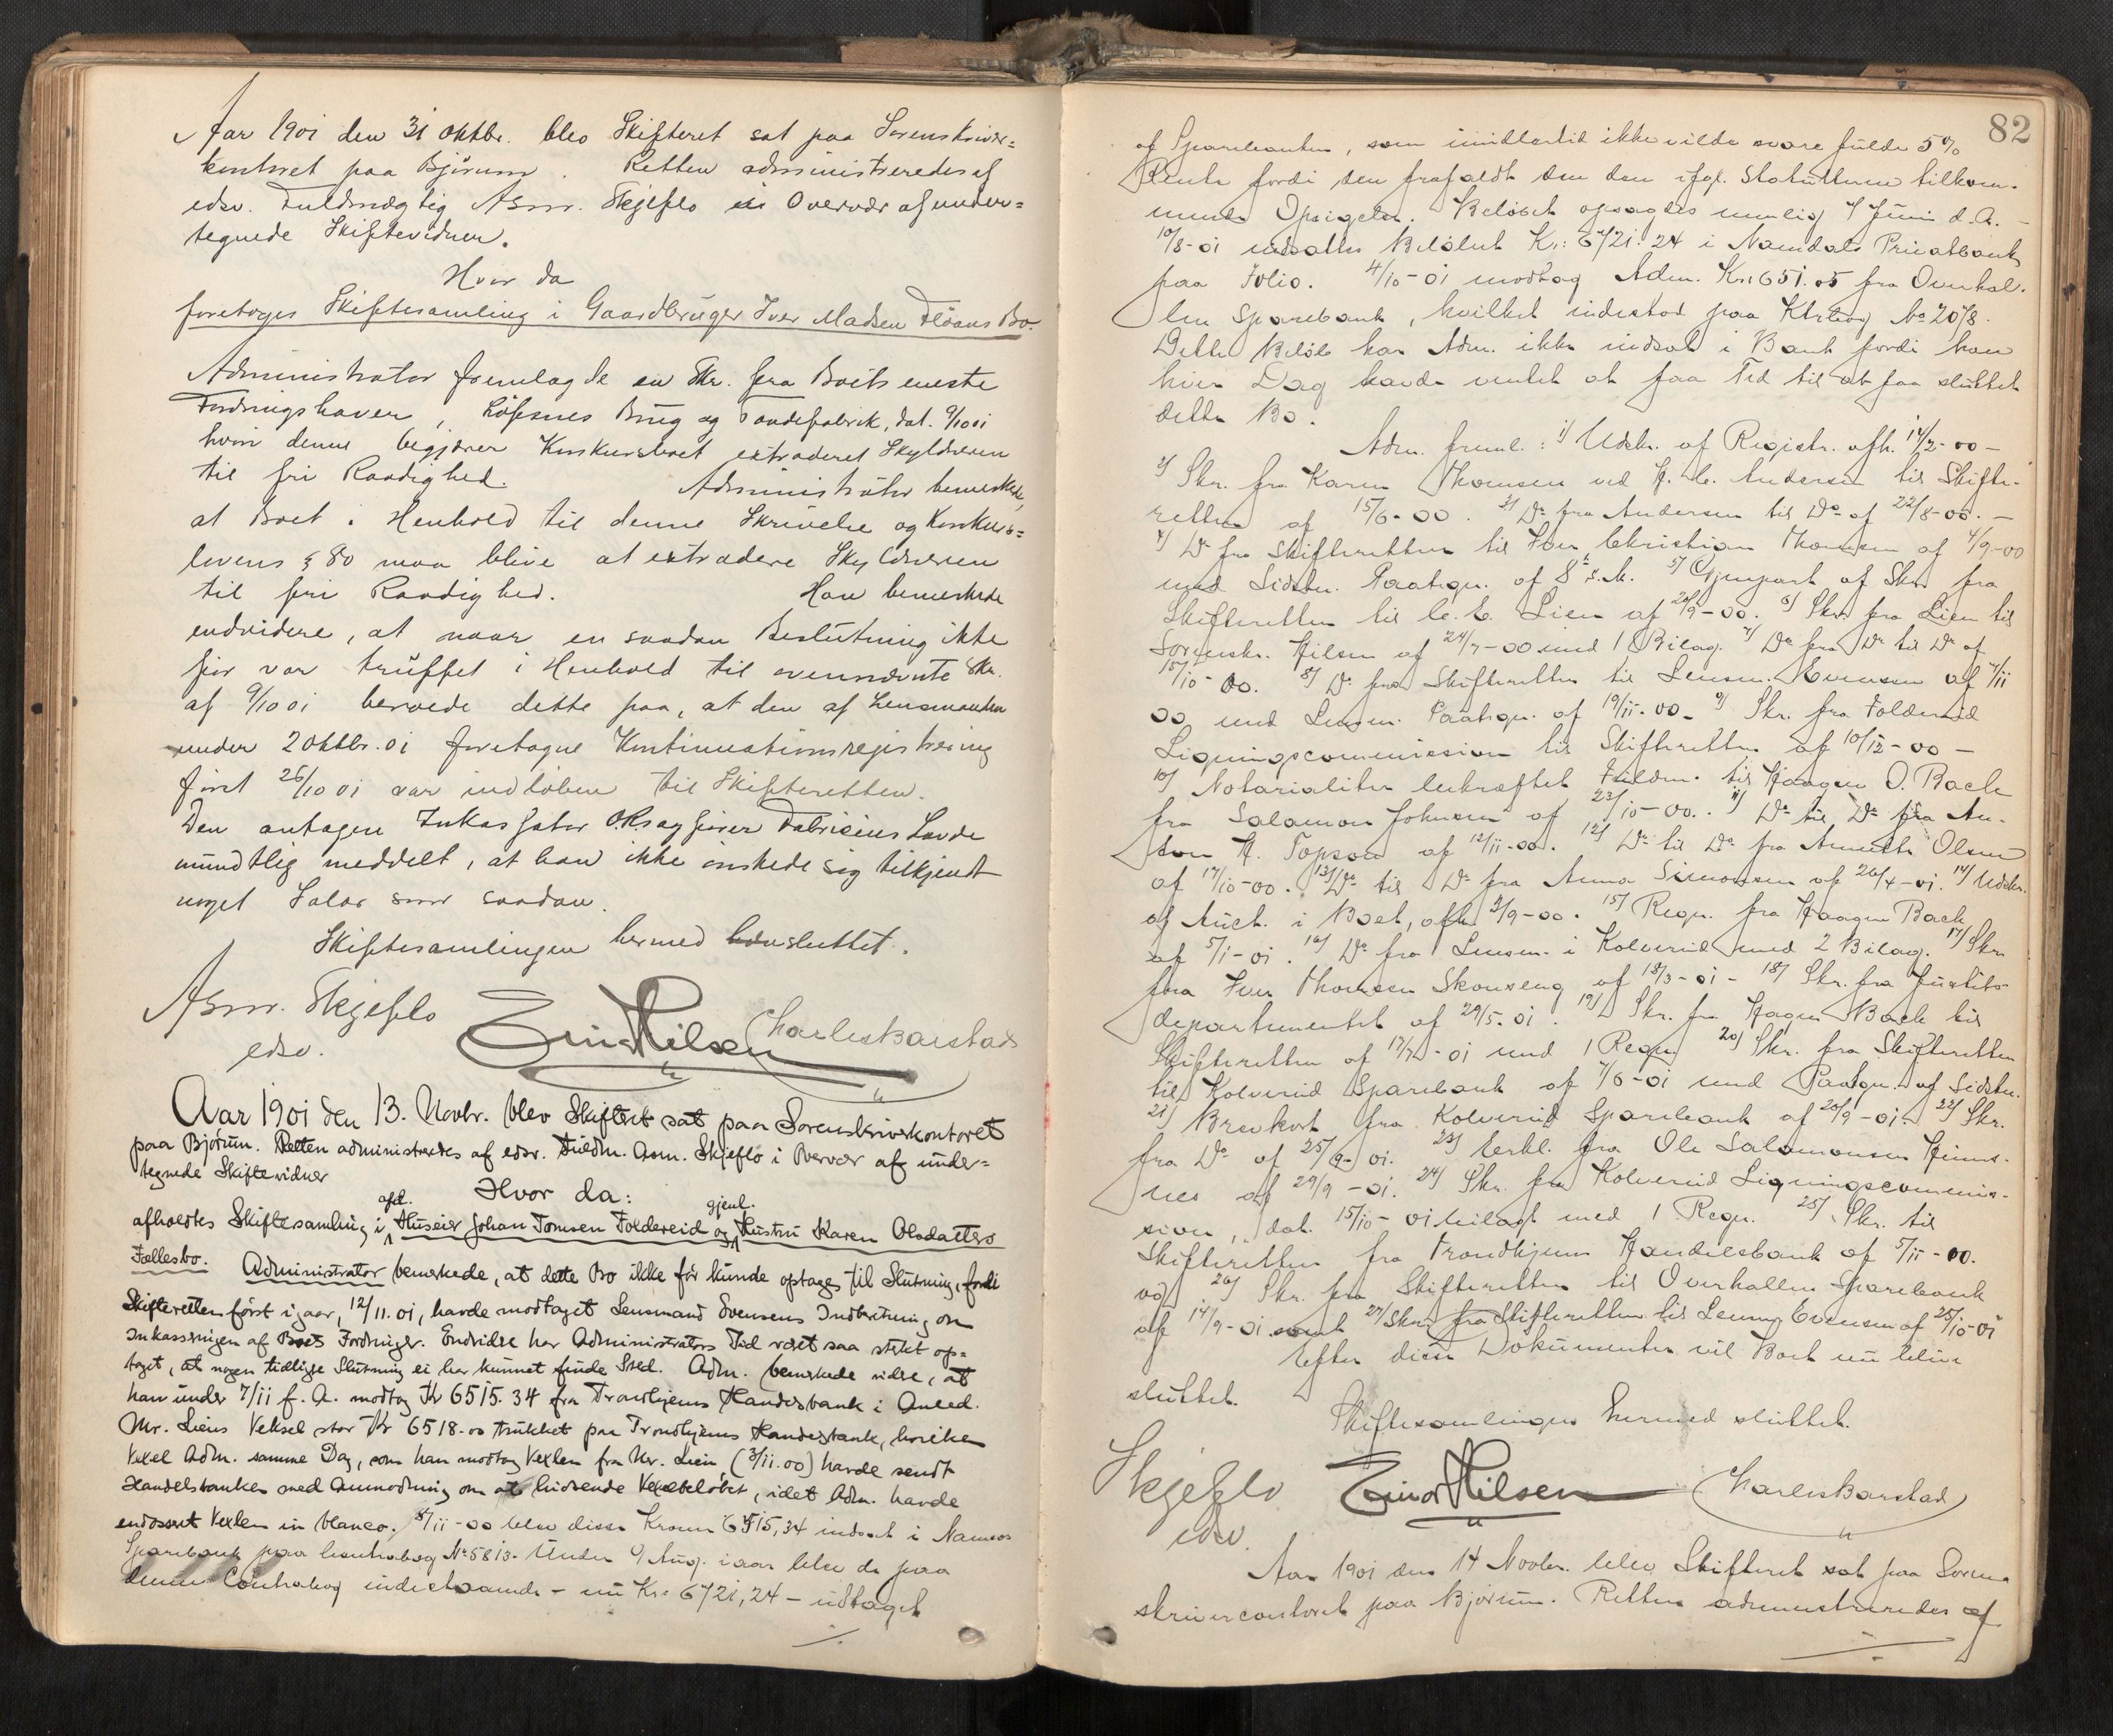 Aar 1901 den 31 Oktbr. blev Skifteret sat paa Sorenskriver=
kontoret paa Bjørum. Retten administreredes af
edsv. Fuldmægtig Asm. Skjeflo i Overvær af under=
tegnede Skiftevidner.
Hvor da
foretoges Skiftesamling i Gaardbruger Iver Madsen Flöans Bo.
Administrator fremlagde en Skr. fra Boets eneste
Fordringshaver, Löfsnes Brug og Tøndefabrik, dat. 9/10 01
hvori denne begjærer Konkursboet extraderet Skyldneren
til fri Raadighed. Administrator bemerkede,
at Boet i Henhold til denne Skrivelse og Konkurs=
lovens § 80 maa blive at extradere Skyldneren
til fri Raadighed. Han bemerkede
endvidere, at naar en saadan Beslutning ikke
før var truffet i Henhold til ovennævnte Skr.
af 9/10 01 beroede dette paa, at den af Lensmanden
under 2 Oktbr. 01 foretagne Kontinuationsregistrering
først 26/10 01 var indløben til Skifteretten.
Den antagne Inkassator O.R.sagfører Fabricius havde
mundtlig meddelt, at han ikke ønskede sig tilkjendt
noget Salær som saadan.
Skiftesamlingen hermed sluttet.
Asm. Skjeflo Einar Hilsen Charles Barstad
edsv.
Aar 1901 den 13. Novbr. blev Skifteret sat paa Sorenskriverkontoret
paa Bjørum. Retten administredes af edsv. Fuldm. Asm. Skjeflo i Overvær af under=
tegnede Skiftevidner
Hvor da:
afd. gjenl.
afholdtes Skiftesamling i Huseier Johan Tomsen Foldereid og Hustru Karen Olsdatters
Fællesbo. Administrator bemerkede, at dette Bo ikke før kunde optages til Slutning, fordi
Skifteretten først igaar, 12/11.01, havde modtaget Lensmand Evensens Indberetning om
Inkasseringen af Boets Fordringer. Endvidre har Administrators Tid været saa sterkt op=
taget, at nogen tidligere Slutning ei har kunnet finde Sted. Adm. bemerkede vidre, at
han under 7/11 f. A. modtog Kr 6515.34 fra Trondhjems Handelsbank i Anled.
Mr. Liens Veksel stor Kr 6518.00 trukket paa Trondhjems Handelsbank, hvilken
Vexel Adm. samme Dag, som han modtog Vexlen fra Mr. Lien, (3/11.00) havde sendt
Handelsbanken med Anmodning om at indsende Vexelbeløbet, idet Adm. havde
endosseret Vexlen in blanco. 8/11-00 blev disse Kroner 6515,34 indsat i Namsos
Sparebank paa Contrabog No 5813. Under 9 Aug. iaar blev de paa
denne Contrabog indestaaende - nu Kr: 6721,24 - udtaget
82
af Sparebanken, som imidlertid ikke vilde svare fulde 5%
Rente fordi den frafaldt den den ifgl. Statutterne tilkom-
mende Opsigelse. Beløbet opsagdes nemlig 7 Juni d. A. -
10/8-01 indsattes Beløbet Kr: 6721.24 i Namdals Privatbank
paa Folio. 4/10-01 modtog Adm. Kr: 651.05 fra Overhal-
len Sparebank, hvilket indestod paa Ktrbog No 2078.
Dette Beløb har Adm. ikke indsat i Bank fordi han
hver Dag havde ventet at faa Tid til at faa sluttet
dette Bo.
Adm. freml.: 1/ Udskr. af Registr. afh. 14/2-00 -
2/ Skr. fra Karen Thomsen ved H. C. Andersen til Skifte-
retten af 15/6-00. 3/ Do fra Andersen til Do af 22/8-00. -
4/ Do fra Skifteretten til Iver Christian Thomsen af 4/9-00
med Sidstn. Paategn. af 8 s. M. 5/ Gjenpart af Skr. fra
Skifteretten til C. C. Lien af 20/9-00. 6/ Skr. fra Lien til
Sorenskr. Hilsen af 24/9-00 med 1 Bilag. 7/ Do fra Do til Do af
15/10-00. 8/ Do fra Skifteretten til Lensm. Evensen af 7/11
00 med Lensm. Paategn. af 19/11-00. 9/ Skr. fra Foldereid
Ligningscommission til Skifteretten af 10/12-00 -
10/ Notarialiter bekræftet Fuldm. til Haagen O. Bach
fra Salamon Johnsen af 23/10-00. 11/ Do til Do fra An-
ton H. Topson af 12/11-00. 12/ Do til Do fra Annette Olsen
af 17/10-00. 13/ Do til Do fra Anna Simonsen af 26/4-01. 14/ Udskr.
af Auct. i Boet, afh. 3/9-00. 15/ Regn. fra Haagen Bach
af 5/1-01. 16/ Do fra Lensm. i Kolvereid med 2 Bilag. 17/ Skr.
fra Iver Thomsen Skonseng af 18/3-01 - 18/ Skr. fra Justits-
departementet af 29/5.01. 19/ Skr. fra Hagen Bach til
Skifteretten af 17/7-01 med 1 Regn. 20/ Skr. fra Skifteretten
til Kolvereid Sparebank af 7/6-01 med Paategn. af Sidstn.
21/ Brevkort fra Kolvereid Sparebank af 20/9-01. 22/ Skr.
fra Do af 25/9-01. 23/ Erkl. fra Ole Salamonsen Heims-
nes af 29/9-01. 24/ Skr. fra Kolvereid Ligningscommis-
sion, dat. 15/10-01 bilagt med 1 Regn. 25/ Skr. til
Skifteretten fra Trondhjems Handelsbank af 5/11-00.
og 26/ Skr. fra Skifteretten til Overhallen Sparebank
af 14/9-01 samt 27/ Skr. fra Skifteretten til Lensm. Evensen af 25/10-01
Efter disse Dokumenter vil Boet nu blive
sluttet.
Skiftesamlingen hermed sluttet.
Skjeflo Einar Hilsen Charles Barstad
edsv.
Aar 1901 den 14 Novbr. blev Skifteret sat paa Soren-
skrivercontoret paa Bjørum. Retten administreredes af